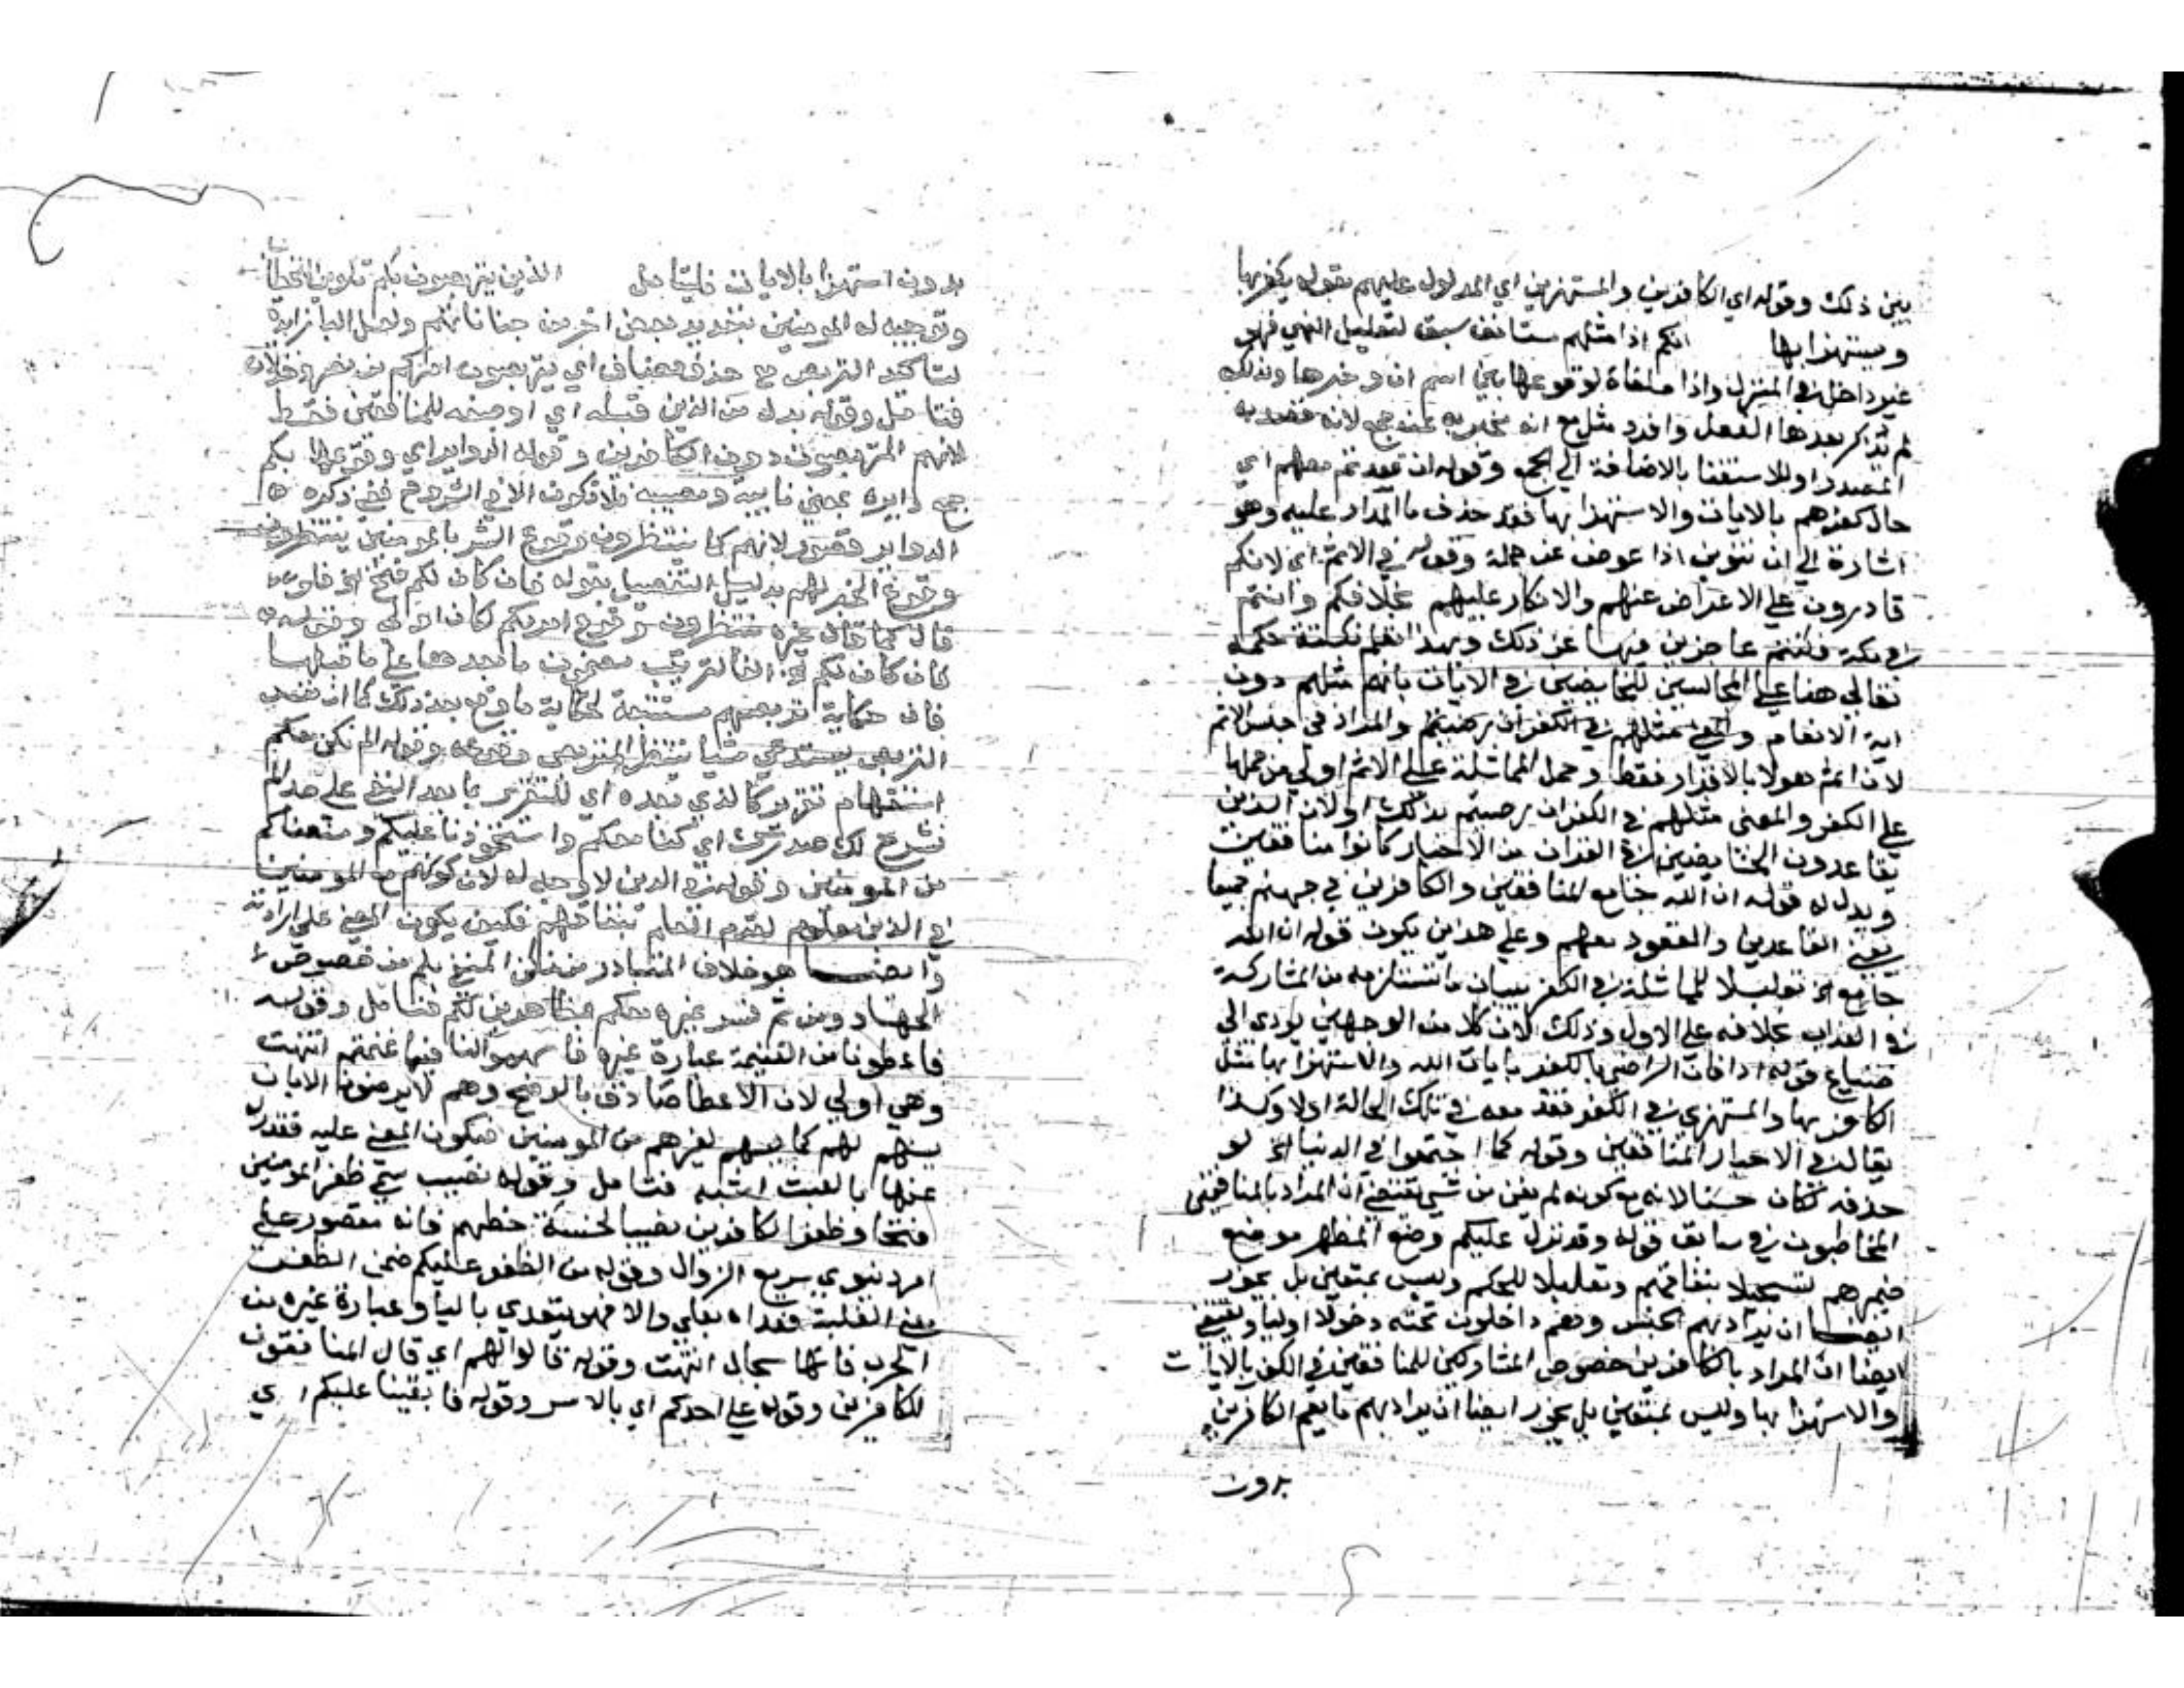 بين ذلك وقوله اي الكافرين والمستهزين اي المدلول عليهم بقوله يكفر بها
ويستهزا بها انكم اذا مثلهم مستانف سبق لتعليل النهي فهو
غير داخل في المنزل واذا ملغاة لوقوعها بين اسم ان وخبرها ولذلك
لم تذكر بعدها الفعل وافرد مثل مع انه مخبر به عنه جمع لانه قصد به
المصدر او للاستغنا بالاضافة الي الجمع وقوله ان قعدتم معهم اي
حال كفرهم بالايات والاستهزا بها فقد حذف ما المدار عليه وهو
اشارة الي ان تنوين اذا عوض عن جملة وقوله في الاثم اي لانكم
قادرون علي الاعراض عنهم والانكار عليهم بخلافكم وانتم
في مكة فكنتم عاجزين فيها عن ذلك وبهذا تعلم نكتة حكمه
تعالي هنا علي المجالسين للخايضين في الايات بانهم مثلهم دون
اية الانعام والمعني مثلهم في الكفر ان رضيتم والمراد في جنس الاثم
لان اثم هولا بالاقرار فقط وحمل المماثلة علي الاثم اولي من حملها
علي الكفر والمعني مثلهم في الكفر ان رضيتم بذلك او لان الذين
يقاعدون الخايضين في القران من الاحبار كانوا منافقين
ويدل له قوله ان الله جامع المنافقين والكافرين في جهنم جميعا
يعني القاعدين والمقعود معهم وعلي هذين يكون قوله ان الله
جامع الخ تعليلا للمماثلة في الكفر ببيان ما تستلزمه من المشاركة
في العذاب بخلافه علي الاول وذلك لان كلا من الوجهين يودي الي
ضياع قوله اذا فان الراضي بالكفر بايات الله والاستهزا بها مثل
الكافر بها والمستهزي في الكفر فقد معه في تلك الحالة اولا وكذا
يقال في الاحبار المنافقين وقوله كما اجتمعوا في الدنيا الخ لو
حذفه لكان حسنا لانه مع كونه لم يغن من شي يقتضي ان المراد بالمنافقين
المخاطبون في سابق قوله وقد نزل عليكم وضع المظهر موضع
ضميرهم تسجيلا بنفاقهم وتعليلا للحكم وليس بمتعين بل يجوز
ايضا ان يراد بهم الجنس وهم داخلون تحته دخولا اوليا ويقتضي
ايضا ان المراد بالكافرين خصوص المشاركين للمنافقين في الكفر بالايات
والاستهزا بها وليس بمتعين بل يجوز ايضا ان يراد بهم ما يعم الكافرين
بدون
بدون استهزا بالايات فليتامل الذين يتربصون بكم تلوين الخطاب
وتوجيه له المومنين بتعديد بعض اخر من جناياتهم ولعل البا زايدة
لتاكيد التربص مع حذف مضاف اي يتربصون امركم من نصر وخذلان
فتامل وقوله بدل من الذين قبله اي او صفة للمنافقين فقط
لانهم المتربصون دون الكافرين وقوله الدواير اي وقوعها بكم
جمع دايرة بمعني نايبة ومصيبة فلا تكون الا في الشر وح ففي ذكره
الدواير قصور لانهم كما ينتظرون وقوع الشر بالمومنين ينتظرون
وقوع الخير لهم بدليل التفصيل بقوله فان كان لكم فتح الخ فلو
قال كما قال غيره ينتظرون وقوع امر بكم لكان اولي وقوله
فان كان لكم الخ الفا لترتيب مضمون ما بعدها علي ما قبلها
فان حكاية تربصهم مستتبعة لحكاية ما وقع بعد ذلك كما ان نفس
التربص يستدعي شيا ينتظر المتربص وقوعه وقوله الم نكن معكم
استفهام تقرير كالذي بعده اي للتقرير بما بعد النفي علي حد الم
نشرح لك صدرك اي كنا معكم واستحوذنا عليكم ومنعناكم
من المومنين وقوله في الدين لا وجه له لان كونهم مع المومنين
في الدين معلوم لعدم العلم بنفاقهم فكيف يكون المعني علي ارادته
وايضا هو خلاف المتبادر من المعني بل من خصوص
الجهاد ومن ثم فسر غيره معكم مظاهرين لكم فتامل وقوله
فاعطونا من الغنيمة عبارة غيره فاسهموا لنا فيما غنمتم انتهت
وهي اولي لان الاعطا صادق بالرضخ وهم لا يرضون الا بان
يسهم لهم كما يسهم لغيرهم من المومنين
فتامل وقوله نصيب سمي ظفر المومنين
فتحا وظفر الكافرين نصيبا لخسة حظهم فانه مقصور علي
امر دنيوي سريع الزوال وقوله من الظفر عليكم ضمن الظفر
معني الغلبة فعداه بعلي والا فهو يتعدي بالبا وعبارة غيره من
الحرب فانها سجال انتهت وقوله قالوا لهم اي قال المنافقون
للكافرين وقوله علي احدكم اي بالاسر وقوله فابقينا عليكم اي